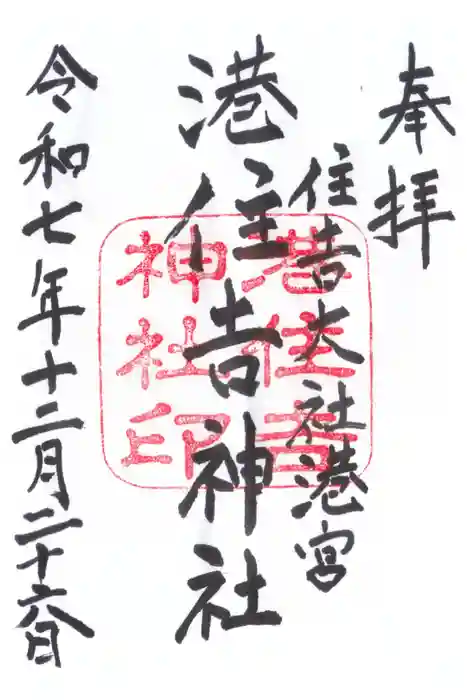 奉拝
住吉大社港宮
港住吉神社
港住吉
神社印
令和七年十二月二十六日